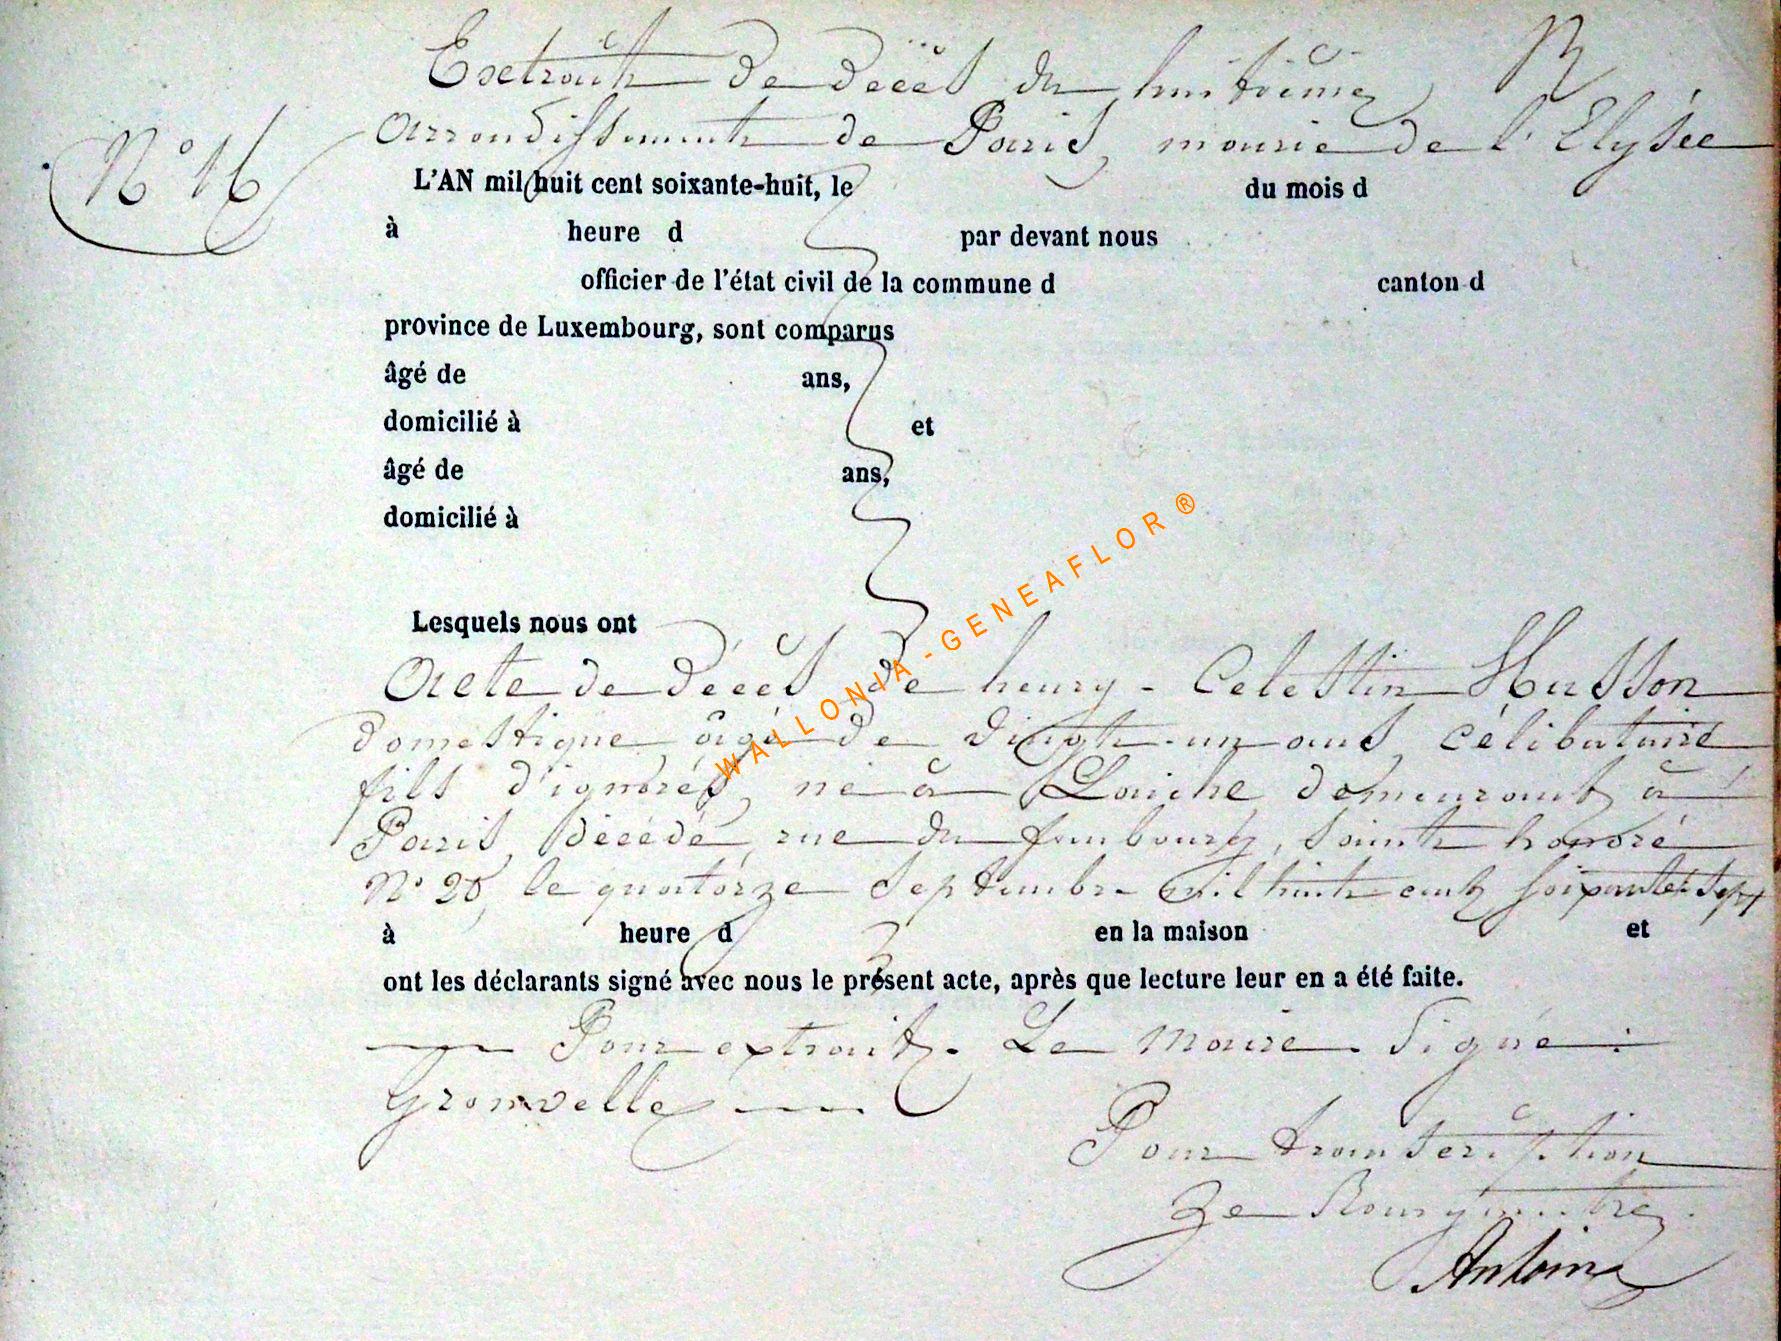 Extrait de décès du huitième
N° 16
arrondissement de Paris, mairie de l'Elysée
L'AN mil huit cent soixante-huit, le du mois d
à heure d par devant nous
officier de l'état civil de la commune d canton d
province de Luxembourg, sont comparus
âgé de ans,
domicilié à et
âgé de ans,
domicilié à
Lesquels nous ont
Acte de décès de henry - Celestin Husson
domestique âgé de vingt-un ans, célibataire
fils d'ignorés, né à Laiche demeurant à
Paris, décédé rue du faubourg, saint honoré
N° 20, le quatorze septembre mil huit cent soixante sept
à heure d en la maison et
ont les déclarants signé avec nous le présent acte, après que lecture leur en a été faite.
Pour extrait. Le Maire. Signé :
Gronvelle
Pour transcription
Le Bourgmestre.
Antoine
WALLONIA - GENEAFLOR ®